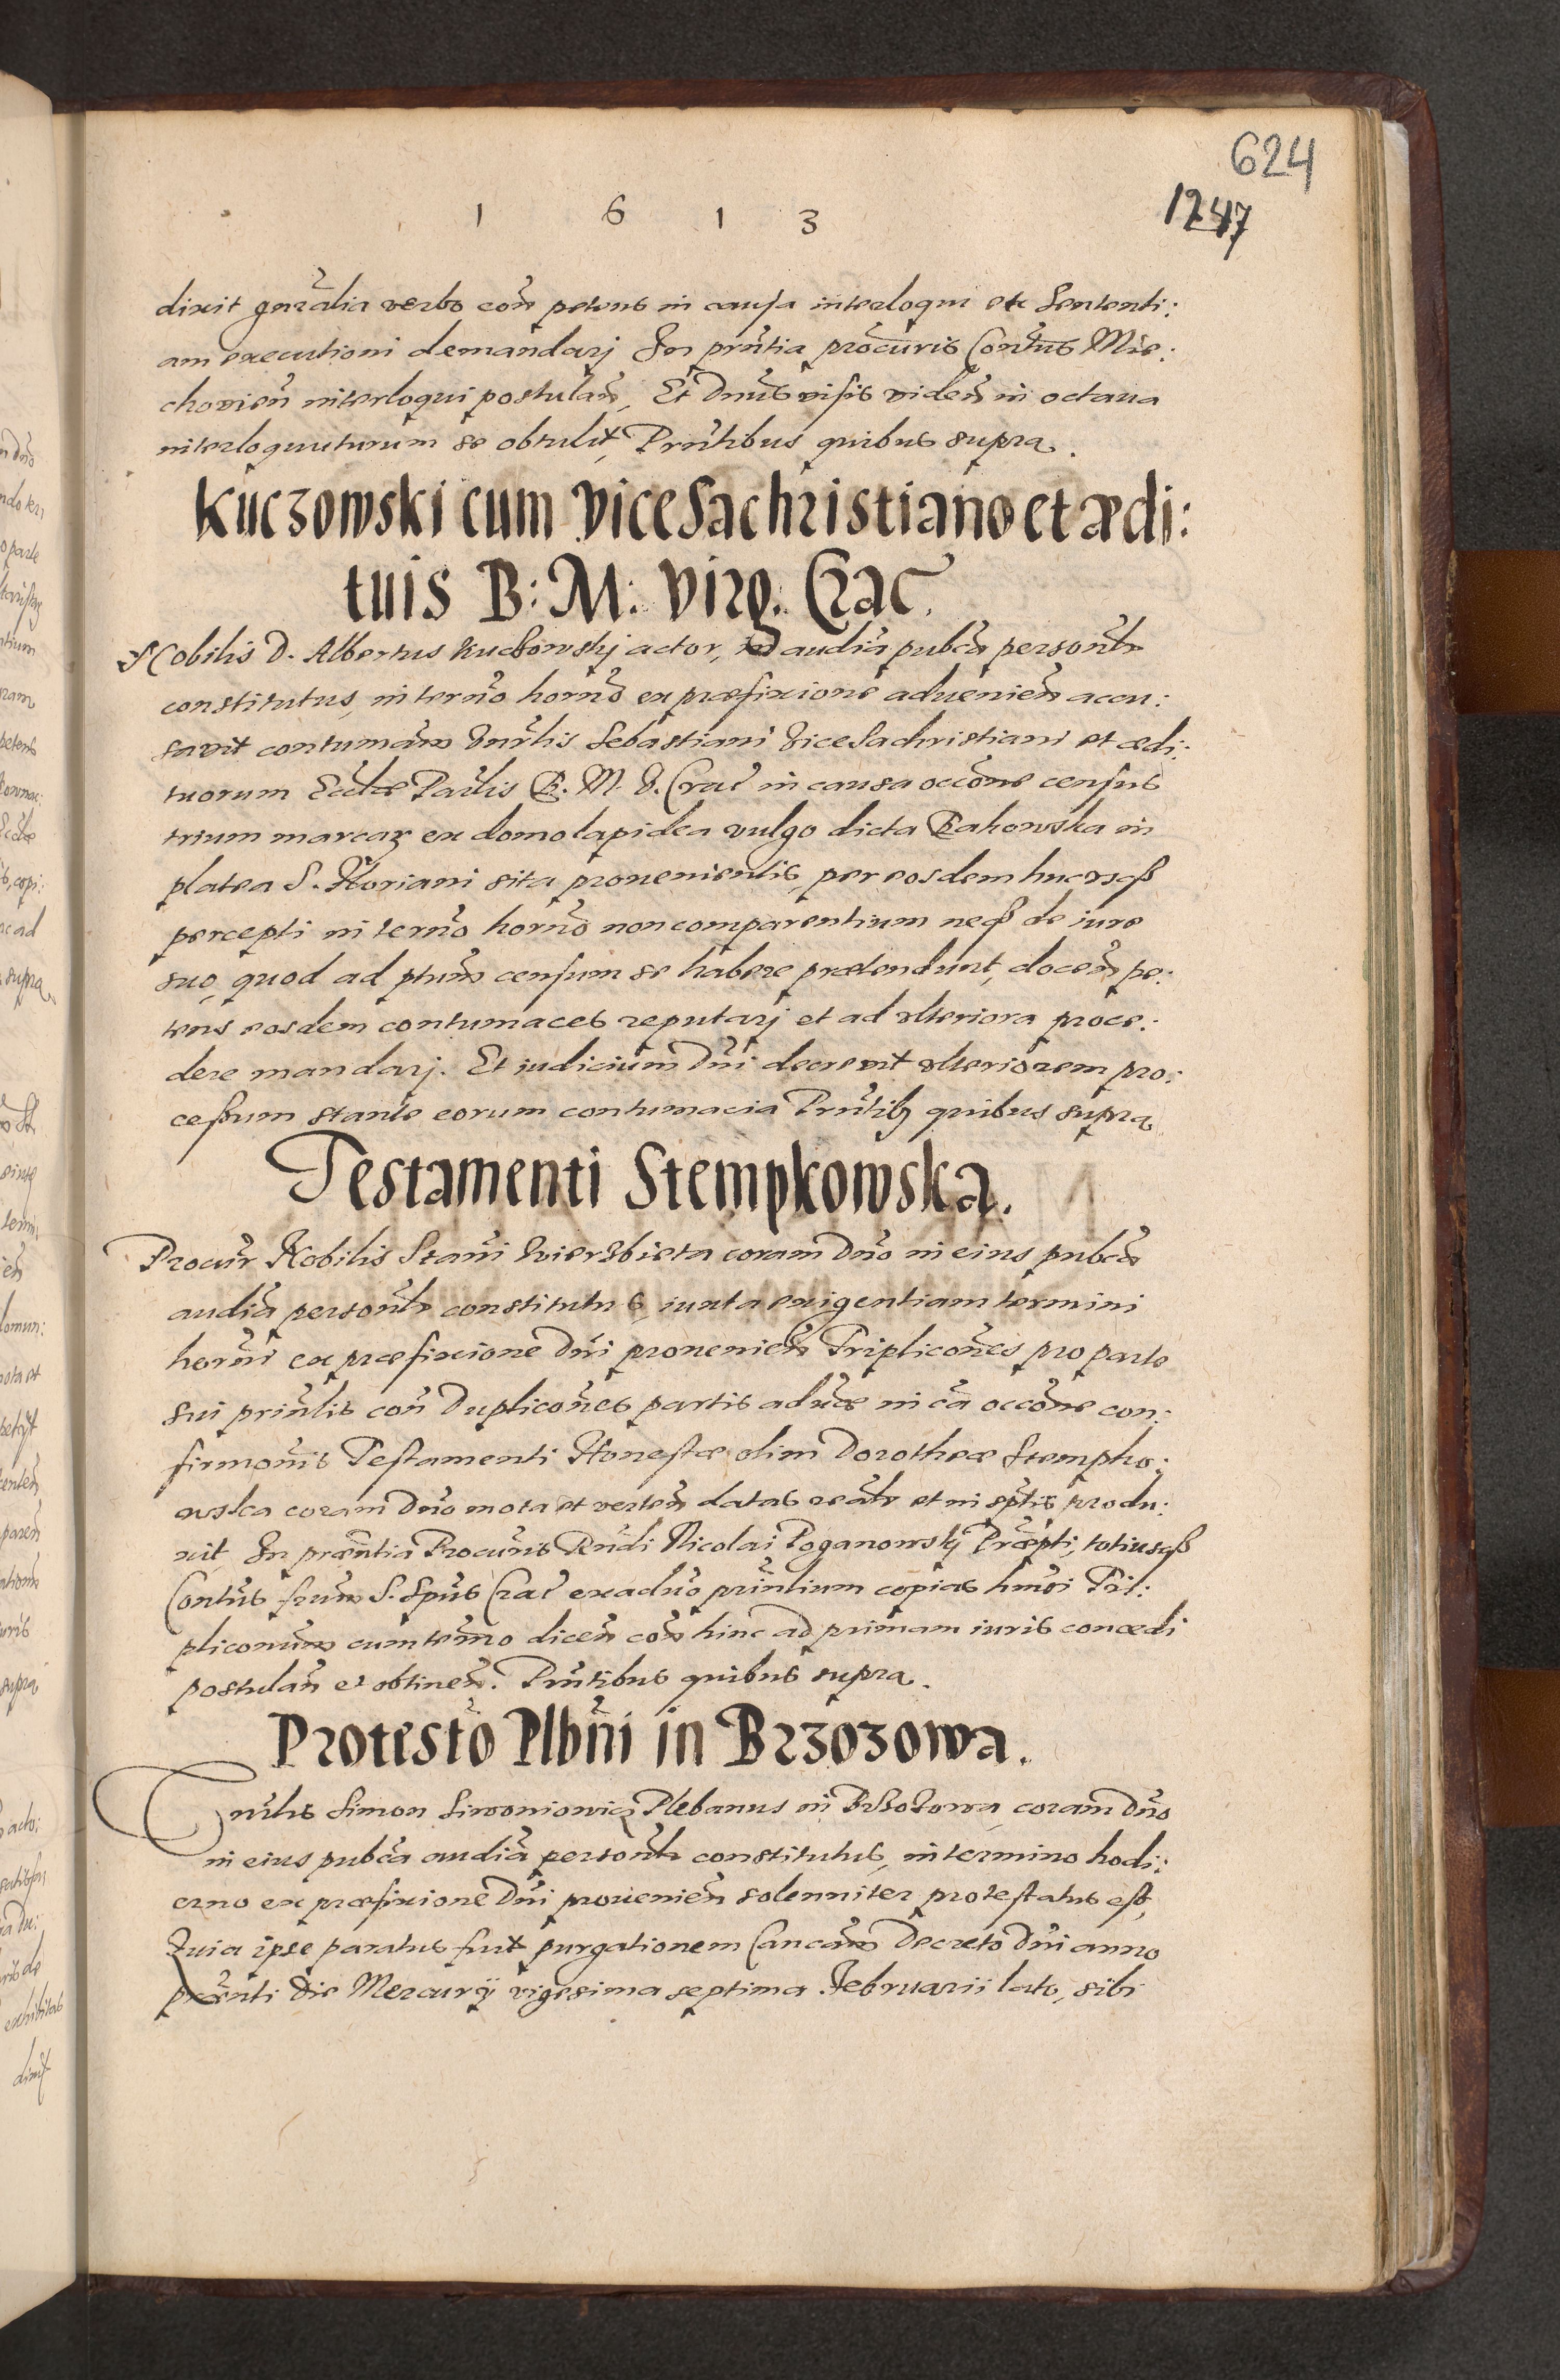 624
1 6 1 3
1247
dixit gnralia verbo con petens in causa interloqui et Sententi:
am executioni demandarj In prntia procuris Contus Mie:
chovien interloqui postulan, Et Dnus visis viden in octava
interloquuturum se obtulit, Prntibus quibus supra.
Kuczowski cum vice Sachristiano et ædi:
tuis B: M: Virg. Crac.
Nobilis D. Albertus Kuczowskj actor, in audia pubca personlr
constitutus, in terno horno ex præfixione advenien accu:
savit contumam Vnrlis Sebastiani vice Sachristiani et ædi:
tuorum Ecclæ Paralis B. M. V. Crac in causa occone census
trium marcar ex domo lapidea vulgo dicta Bakowska in
platea S. Floriani sita provenientis, per eosdem hucusq
percepti in terno horno non comparentium neq de iure
suo, quod ad ptum censum se habere prætendunt, docen pe:
tens eosdem contumaces reputarj et ad vlteriora proce:
dere mandarj. Et iudicium Dni decrevit vlteriorem pro:
cessum stante eorum contumacia Prntib quibus supra
Testamenti Stempkowska.
Procur Nobilis Stani Wierzbieta coram Dno in eius pubca
audia personlr constitutus, iuxta exigentiam termini
horni ex præfixione Dni provenien Triplicones pro parte
sui prinlis con Duplicones partis adversæ in ca occone con:
firmonis Testamenti Honestæ olim Dorotheæ Stempko:
wska coram Dno mota et verten datas realr et in sptis produ:
xit In præntia Procuris Rndi Nicolai Poganowskj Præpti, totiusq
Contus frum S. Spus Crac ex adverso printium copias hmoi Tri:
pliconum cum termno dicen con hinc ad primam iuris concedi
postulan et obtinen. Prntibus quibus supra.
Protesto Plbni in Brzozowa.
Vnrlis Simon Simoniowicz Plebanus in Brzozowa, coram Dno
in eius pubca audia personlr constitutus, in termino hodi:
erno ex præfixione Dni provenien solenniter protestatus est,
Quia ipse paratus fuit purgationem Cancam Decreto Dni anno
prænti die Mercurij vigesima septima Februarii lato, sibi